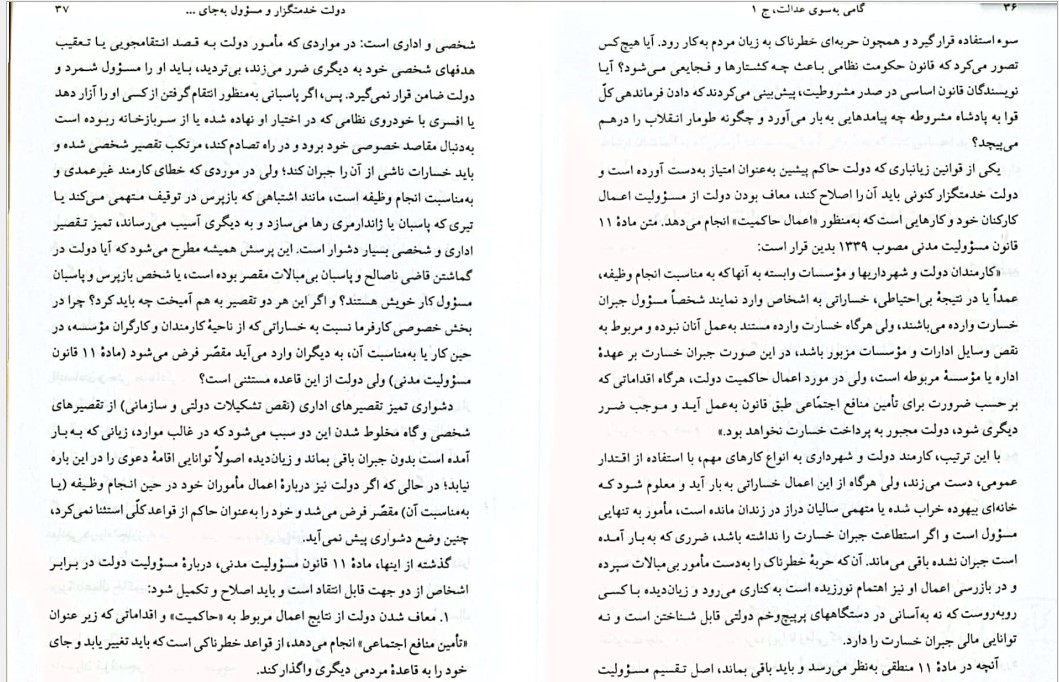 ۳۶
گامی به‌سوی عدالت، ج ۱
سوء استفاده قرار گیرد و همچون حربه‌ای خطرناک به زیان مردم به‌کار رود. آیا هیچ‌کس
تصور می‌کرد که قانون حکومت نظامی باعث چه کشتارها و فجایعی می‌شود؟ آیا
نویسندگان قانون اساسی در صدر مشروطیت، پیش‌بینی می‌کردند که دادن فرماندهی کلّ
قوا به پادشاه مشروطه چه پیامدهایی به بار می‌آورد و چگونه طومار انقلاب را درهم
می‌پیچد؟
یکی از قوانین زیانباری که دولت حاکم پیشین به‌عنوان امتیاز به‌دست آورده است و
دولت خدمتگزار کنونی باید آن را اصلاح کند، معاف بودن دولت از مسؤولیت اعمال
کارکنان خود و کارهایی است که به‌منظور «اعمال حاکمیت» انجام می‌دهد. متن مادهٔ ۱۱
قانون مسؤولیت مدنی مصوب ۱۳۳۹ بدین قرار است:
«کارمندان دولت و شهرداریها و مؤسسات وابسته به آنها که به مناسبت انجام وظیفه،
عمداً یا در نتیجهٔ بی‌احتیاطی، خساراتی به اشخاص وارد نمایند شخصاً مسؤول جبران
خسارت وارده می‌باشند، ولی هرگاه خسارت وارده مستند به‌عمل آنان نبوده و مربوط به
نقص وسایل ادارات و مؤسسات مزبور باشد، در این صورت جبران خسارت بر عهدهٔ
اداره یا مؤسسهٔ مربوطه است، ولی در مورد اعمال حاکمیت دولت، هرگاه اقداماتی که
بر حسب ضرورت برای تأمین منافع اجتماعی طبق قانون به‌عمل آید و موجب ضرر
دیگری شود، دولت مجبور به پرداخت خسارت نخواهد بود.»
با این ترتیب، کارمند دولت و شهرداری به انواع کارهای مهم، با استفاده از اقتدار
عمومی، دست می‌زند، ولی هرگاه از این اعمال خساراتی به‌بار آید و معلوم شود که
خانه‌ای بیهوده خراب شده یا متهمی سالیان دراز در زندان مانده است، مأمور به تنهایی
مسؤول است و اگر استطاعت جبران خسارت را نداشته باشد، ضرری که به‌بار آمده
است جبران نشده باقی می‌ماند. آن‌که حربهٔ خطرناک را به‌دست مأمور بی‌مبالات سپرده
و در بازرسی اعمال او نیز اهتمام نورزیده است به کناری می‌رود و زیان‌دیده با کسی
روبه‌روست که نه به‌آسانی در دستگاههای پرپیچ‌وخم دولتی قابل شناختن است و نه
توانایی مالی جبران خسارت را دارد.
آنچه در مادهٔ ۱۱ منطقی به‌نظر می‌رسد و باید باقی بماند، اصل تقسیم مسؤولیت
دولت خدمتگزار و مسؤول به‌جای ...
۳۷
شخصی و اداری است: در مواردی که مأمور دولت به قصد انتقامجویی یا تعقیب
هدفهای شخصی خود به دیگری ضرر می‌زند، بی‌تردید، باید او را مسؤول شمرد و
دولت ضامن قرار نمی‌گیرد. پس، اگر پاسبانی به‌منظور انتقام گرفتن از کسی او را آزار دهد
یا افسری با خودروی نظامی که در اختیار او نهاده شده یا از سربازخانه ربوده است
به‌دنبال مقاصد خصوصی خود برود و در راه تصادم کند، مرتکب تقصیر شخصی شده و
باید خسارات ناشی از آن را جبران کند؛ ولی در موردی که خطای کارمند غیرعمدی و
به‌مناسبت انجام وظیفه است، مانند اشتباهی که بازپرس در توقیف متهمی می‌کند یا
تیری که پاسبان یا ژاندارمری رها می‌سازد و به دیگری آسیب می‌رساند، تمیز تقصیر
اداری و شخصی بسیار دشوار است. این پرسش همیشه مطرح می‌شود که آیا دولت در
گماشتن قاضی ناصالح و پاسبان بی‌مبالات مقصر بوده است، یا شخص بازپرس و پاسبان
مسؤول کار خویش هستند؟ و اگر این هر دو تقصیر به هم آمیخت چه باید کرد؟ چرا در
بخش خصوصی کارفرما نسبت به خساراتی که از ناحیهٔ کارمندان و کارگران مؤسسه، در
حین کار یا به‌مناسبت آن، به دیگران وارد می‌آید مقصّر فرض می‌شود (مادهٔ ۱۱ قانون
مسؤولیت مدنی) ولی دولت از این قاعده مستثنی است؟
دشواری تمیز تقصیرهای اداری (نقص تشکیلات دولتی و سازمانی) از تقصیرهای
شخصی و گاه مخلوط شدن این دو سبب می‌شود که در غالب موارد، زیانی که به بار
آمده است بدون جبران باقی بماند و زیان‌دیده اصولاً توانایی اقامهٔ دعوی را در این باره
نیابد؛ در حالی که اگر دولت نیز دربارهٔ اعمال مأموران خود در حین انجام وظیفه (یا
به‌مناسبت آن) مقصّر فرض می‌شد و خود را به‌عنوان حاکم از قواعد کلّی استثنا نمی‌کرد،
چنین وضع دشواری پیش نمی‌آید.
گذشته از اینها، مادهٔ ۱۱ قانون مسؤولیت مدنی، دربارهٔ مسؤولیت دولت در برابر
اشخاص از دو جهت قابل انتقاد است و باید اصلاح و تکمیل شود:
۱. معاف شدن دولت از نتایج اعمال مربوط به «حاکمیت» و اقداماتی که زیر عنوان
«تأمین منافع اجتماعی» انجام می‌دهد، از قواعد خطرناکی است که باید تغییر یابد و جای
خود را به قاعدهٔ مردمی دیگری واگذار کند.